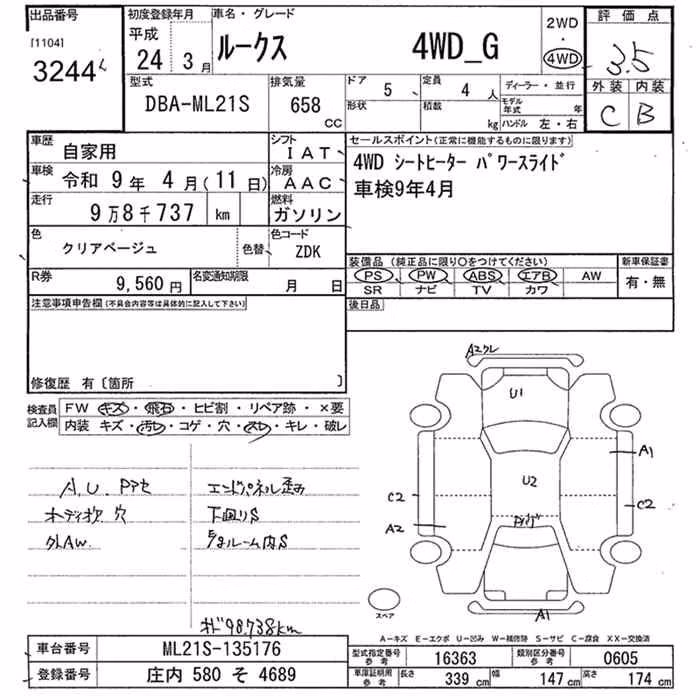 出品番号
[1104]
3244
初度登録年月
平成
24 3月
車名・グレード
ルークス 4WD_G
2WD
・
4WD
評価点
3.5
外装 内装
C B
型式
DBA-ML21S
排気量
658
CC
ドア
5
形状
定員
4 人
積載
kg
ディーラー・並行
モデル年式 年
ハンドル 左・右
車歴
自家用
シフト
IAT
車検 令和 9年 4月(11日)
冷房
AAC
走行
9万8千737 km
燃料
ガソリン
色
クリアベージュ
色替
色コード
ZDK
R券
9,560円
名変通知期限
月 日
セールスポイント(正常に機能するものに限ります)
4WD シートヒーター パワースライド
車検9年4月
装備品(純正品に限り○をつけてください)
PS PW ABS エアB AW
SR ナビ TV カワ
新車保証書
有・無
後日品
注意事項申告欄(不具合内容等は具体的に記入して下さい)
修復歴 有〔箇所 〕
検査員記入欄
FW キズ・飛石・ヒビ割・リペア跡・×要
内装 キズ・汚レ・コゲ・穴・スレ・キレ・破レ
A,U,
エンドパネル歪み
オーディオ欠 穴
下廻りS
外AW.
ルーム内S
98,738km
A2クレ
U1
A1
U2
C2
C2
A2
A1
スペア
A―キズ E―エクボ U―凹み W―補修跡 S―サビ C―腐食 XX―交換済
車台番号
ML21S-135176
登録番号
庄内 580 そ 4689
型式指定番号
参考
16363
類別区分番号
参考
0605
車庫証明用
参考
長さ 339cm
幅 147cm
高さ 174cm